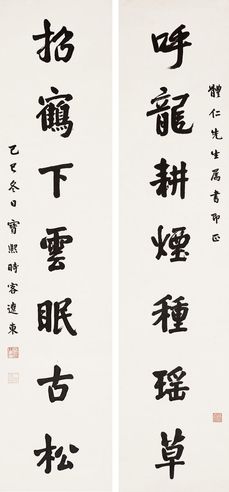 體仁先生屬書即正
呼龍耕煙種瑶草
招鶴下雲眠古松
乙巳冬日寶熙時客遼東